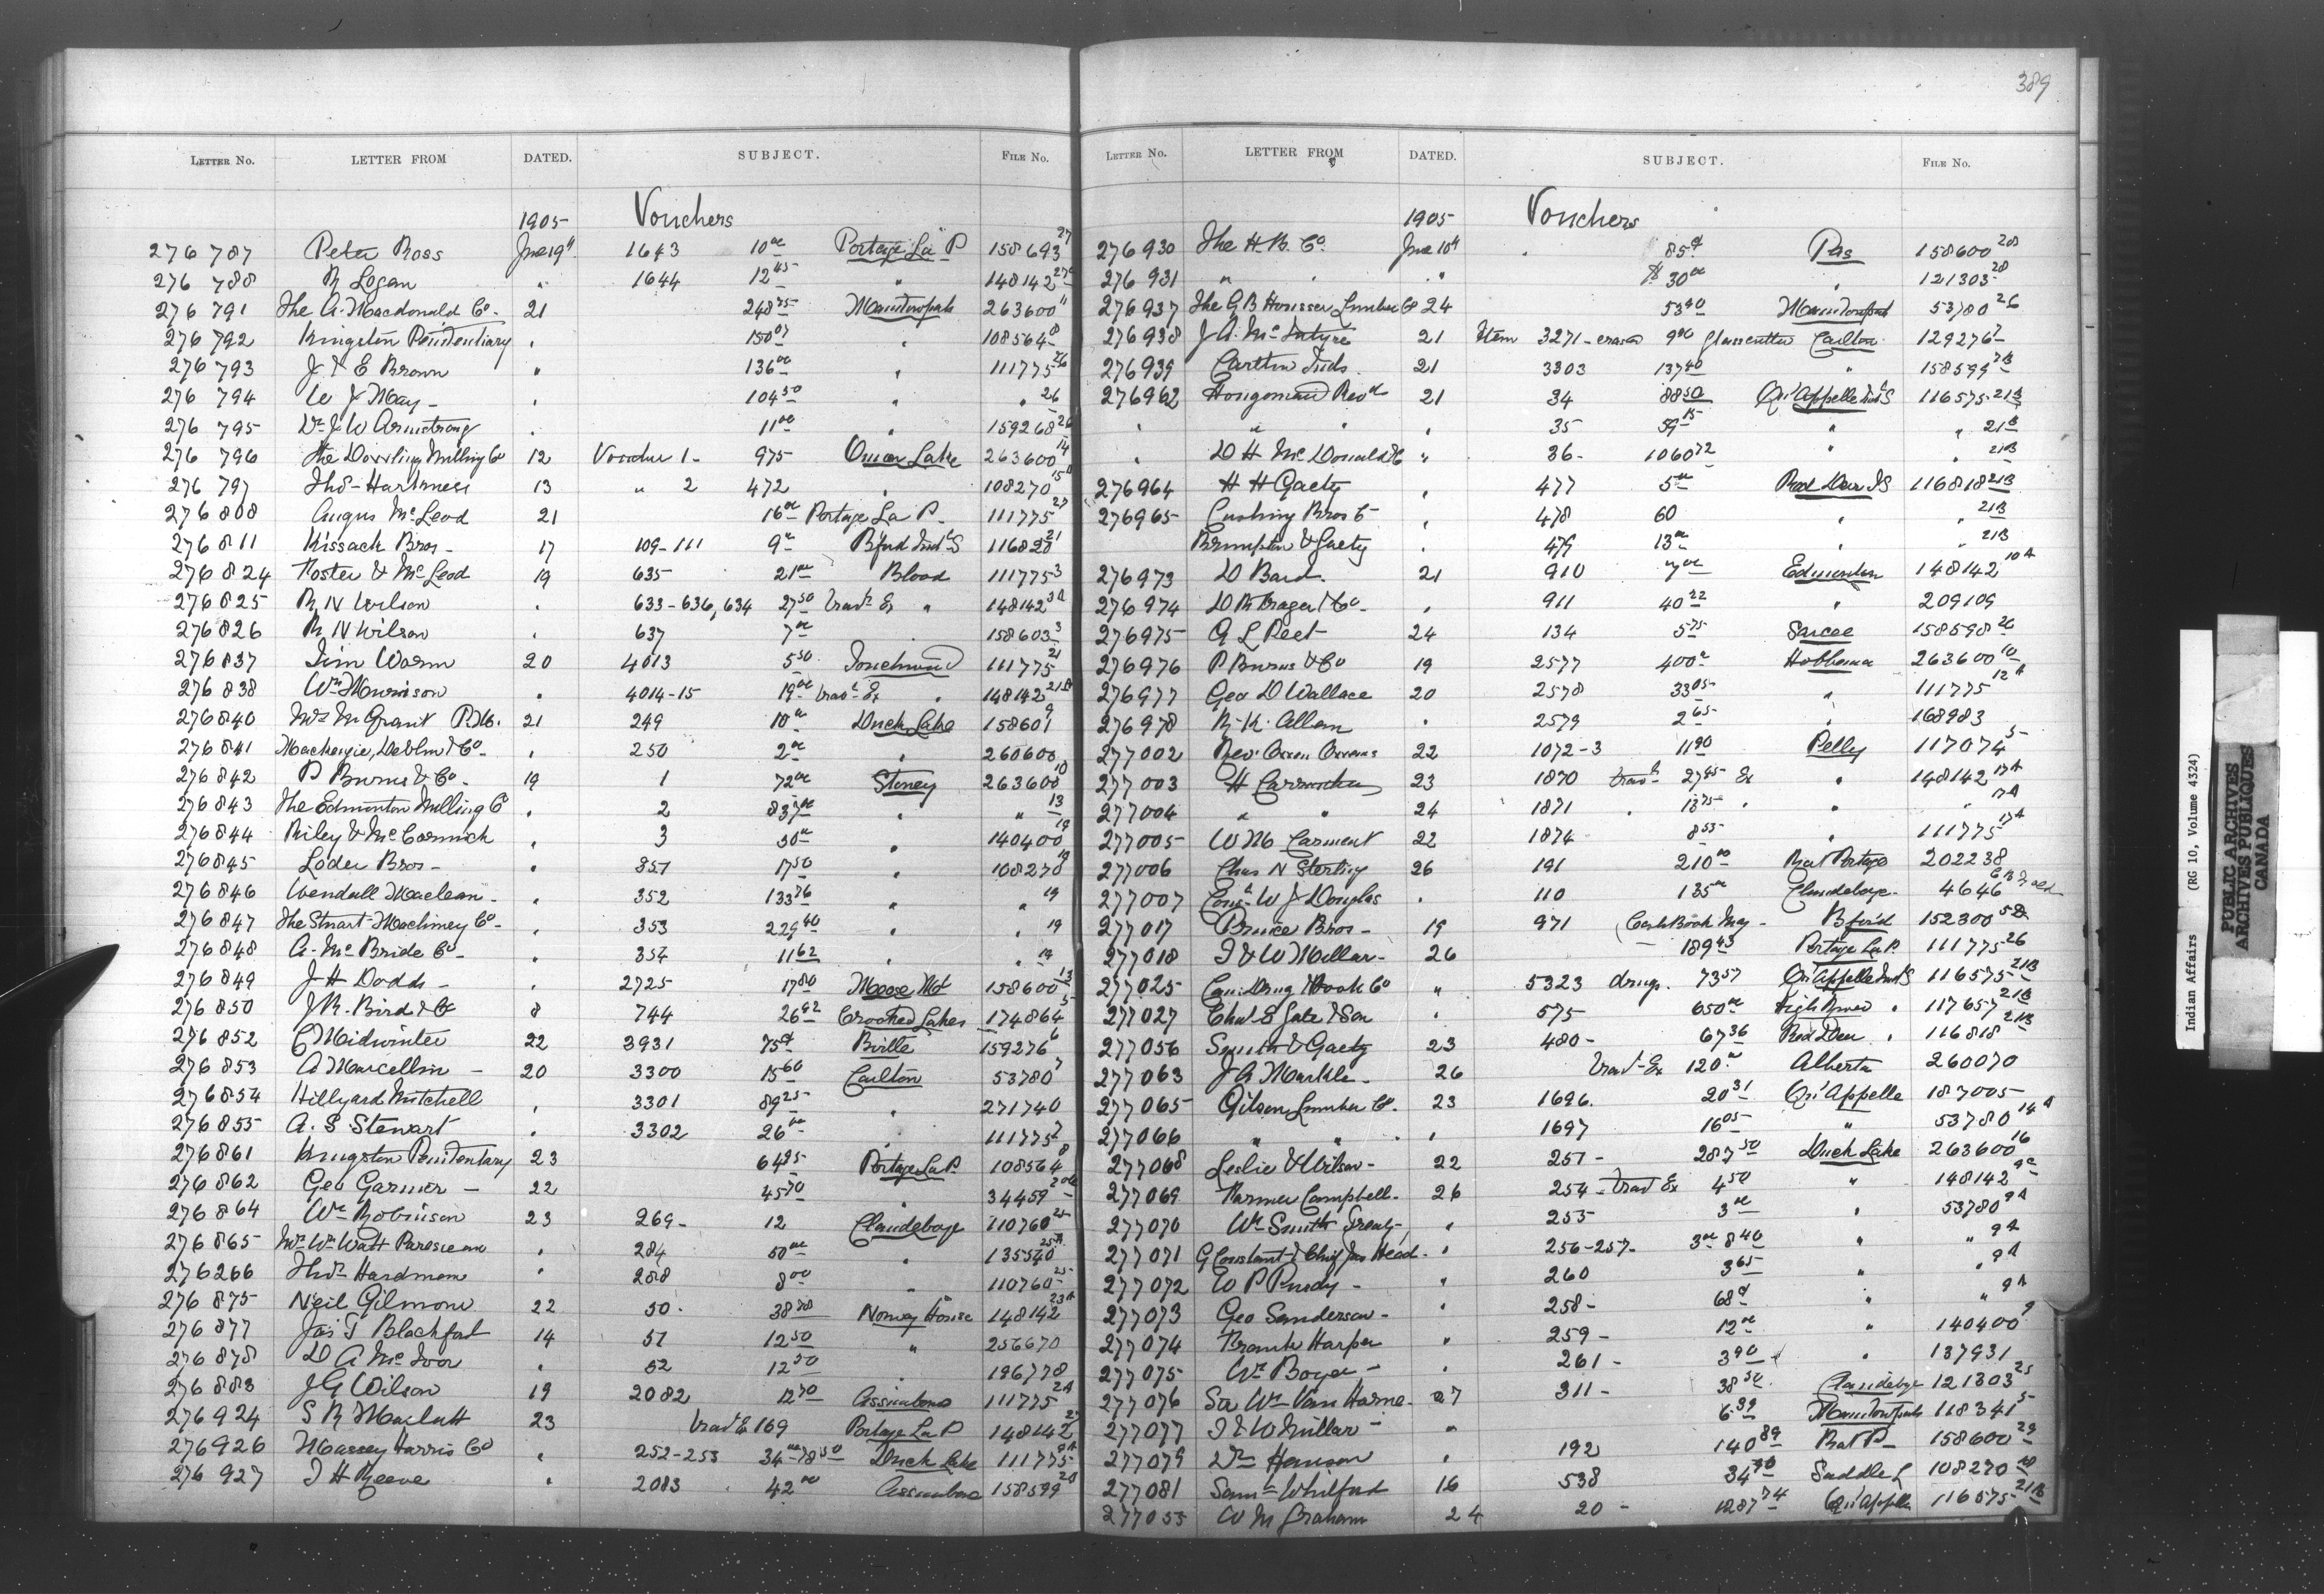 389
LETTER NO. LETTER FROM DATED. SUBJECT. FILE NO.
1905 Vouchers
276 787 Peter Ross June 19" 1643 10 00 Portage La P 158693 27
276 788 R Logan " 1644 12 45 " 148142
276 791 The A. Macdonald Co. 21 248 75 Manitowpah 263600 11
276 792 Kingston Penitentiary " 150 07 " 108564 8
276 793 J & E Brown " 136 00 " 111775 26
276 794 W J May " 104 50 " " 26
276 795 Dr J W Armstrong " 11 00 " 159268 26
276 796 The Dowling Milling Co 12 Voucher 1- 975 Onion Lake 263600 14
276 797 Thos Harkness 13 " 2 472 " 108270 15
276 808 Angus McLeod 21 16 00 Portage La P. 111775 27
276 811 Kissack Bros - 17 109-111 9 00 B'ford Ind'l S 116820 21
276 824 Foster & McLeod 19 635 21 00 Blood 111775 3
276 825 R N Wilson " 633-636, 634 27 50 Trav'l Ex " 148142 3A
276 826 R N Wilson " 637 7 00 158603 3
276 837 Jim Worm 20 4013 5 50 Touchwood 111775 21
276 838 Wm Morrison " 4014-15 19 00 Trav'l Ex " 148142
276 840 Mrs M Grant P.M. 21 249 10 00 Duck Lake 158601 9
276 841 Mackenzie, & Co " 250 2 00 " 260600
276 842 P Burns & Co - 19 1 72 00 Stoney 263600 10
276 843 The Edmonton Milling Co " 2 837 00 " " 13
276 844 Riley & McCormick " 3 30 00 " 140400 19
276 845 Loder Bros - " 351 17 50 " 108270 19
276 846 Wendall Maclean - " 352 133 76 " " 19
276 847 The Stuart Machinery Co - " 353 229 40 " " 19
276 848 A. McBride Co - " 354 11 62 " " 19
276 849 J H Dodds - " 2725 17 80 Moose Mt 158600 13
276 850 J R. Bird & Co 8 744 26 92 Crooked Lakes 174864 5
276 852 C Midwinter 22 3931 75¢ B'ville 159276 6
276 853 A Marcellin - 20 3300 15 60 Carlton 53780 7
276 854 Hillyard Mitchell " 3301 89 25 " 271740
276 855 A. S Stewart " 3302 26 00 " 111775 7
276 861 Kingston Penitentiary 23 64 95 Portage La P. 108564 8
276 862 Geo Garner - 22 45 70 " 34459
276 864 Wm Robinson 23 269 - 12 Clandeboye 110760 25
276 865 Mrs Wm Watt " 284 50 00 " 135540 25A
276 266 Thos Hardman " 288 8 00 " 110760 25
276 875 Neil Gilmour 22 50. 38 78 Norway House 148142 23A
276 877 Jas T Blackford 14 51 12 50 " 256670
276 878 D A McIvor " 52 12 50 " 196778
276 883 J G Wilson 19 2082 12 70 Assiniboine 111775 2A
276 924 S R Marlatt 23 Trav'l Ex 169 Portage La P 148142
276 926 Massey Harris Co " 252-253 34 00-78 50 Duck Lake 111775 9A
276 927 J H Reeve " 2083 42 00 Assiniboine 158599 20
LETTER NO. LETTER FROM DATED. SUBJECT. FILE NO.
1905 Vouchers
276930 The H. B. Co. June 10" 85¢ Pas 158600 28
276 931 " " " $ 30 00 " 121303 28
276937 The G B Housser Lumber Co 24 53 40 Manitowpah 53780 26
276938 J A. McIntyre 21 Item 3271 - erased 9 00 Glasscutter Carlton 129276 7
276939 Carlton Inds. 21 3303 137 40 " 158599
276962 Hougomard Revd 21 34 88 50 Qu'Appelle Ind'l S 116575 21B
" " " " 35 59 15 " " 21B
" D H McDonald & Co " 36 - 1060 72 " " 21B
276964 H H Gaety " 477 5 00 Red Deer I S 116818 21B
276965 Cushing Bros Co " 478 60 " " 21B
Brumpton & Gaety " 479 13 00 " " 21B
276973 D Bard. 21 910 7 00 Edmonton 148142 10A
276974 D R Fraser & Co - " 911 40 22 " 209109
276975 A L Peet 24 134 5 75 Sarcee 158598 26
276976 P Burns & Co 19 2577 400 00 Hobbema 263600 10
276977 Geo D Wallace 20 2578 33 05 " 111775 12A
276978 R. K. Allan " 2579 2 65 " 168983
277002 Rev. Owen Owens 22 1072-3 11 90 Pelly 117074 5
277003 H Carruthers 23 1870 Trav'l 27 45 Ex " 148142 17A
277004 " " 24 1871 " 13 75 " " " 17A
277005 W M Carment 22 1874 8 55 " 111775 17A
277006 Chas N Sterling 26 191 210 00 Rat Portage 202238
277007 W J Douglas " 110 135 00 Clandeboye. 4646
277017 Prince Bros - 19 971 Cash Book May - B'ford 152300
277018 J & W Millar - 26 - 189 43 Portage La P. 111775 26
277025 Can: Drug & Book Co " 5323 drugs. 73 57 Qu'Appelle Ind'l S 116575 21B
277027 Chas E Gate & Son " 575 650 00 High River " 117657 21B
277056 Smith & Gaety 23 480 - 67 36 Red Deer " 116818 21B
277063 J A Markle - 26 Trav'l Ex 120 00 Alberta 260070
277065 Gilson Lumber Co. 23 1696. 20 31 Qu'Appelle 187005
277066 " " " 1697 16 05 " 53780 14A
277068 Leslie & Wilson - 22 251 - 287 50 Duck Lake 263600 16
277069 Farmer Campbell. 26 254 - Trav Ex 4 50 " 148142 9C
277070 Wm Smith " 255 3 00 " 53780 9A
277071 G Constant & Chief Jas Head. " 256-257- 3 00 8 40 " " 9A
277072 W P Purdy - " 260 3 65 " " 9A
277073 Geo Sanderson - " 258 - 68¢ " " 9A
277074 Frank Harper " 259 - 12 00 " 140400 9
277075 Wm Boyer - " 261 - 3 90 " 137931
277076 Sir Wm Van Horne. 27 311 - 38 50 Clandeboye 121303 25
277077 J & W Millar - " 6 99 Manitowpah 118341 5
277079 Dr Hanson " 192 140 89 Rat P - 158600 29
277081 Saml Whitford 16 538 34 30 Saddle L 108270 18
277055 W M Graham 24 20 - 1287 74 Qu'Appelle 116575 21B
Indian Affairs (RG 10, Volume 4324)
PUBLIC ARCHIVES
ARCHIVES PUBLIQUES
CANADA